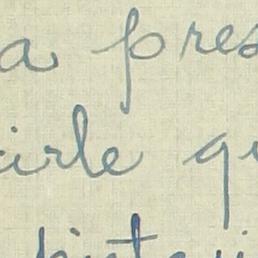 a pres
irle qu